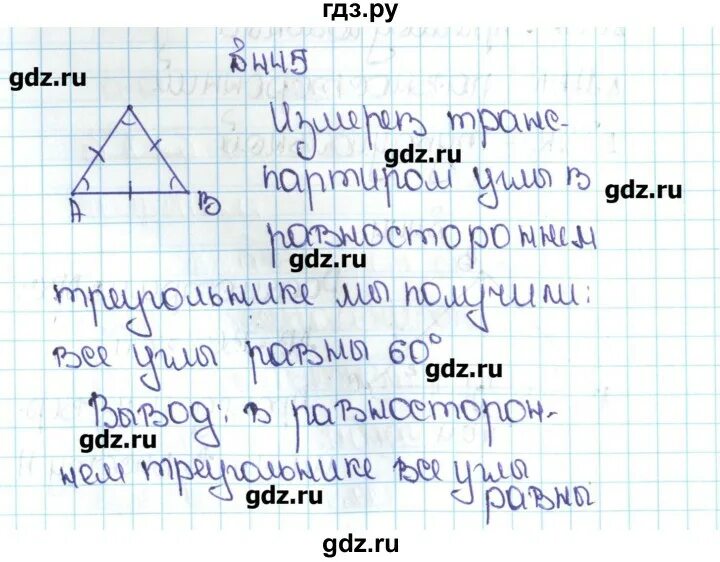 гдз.ру
в 445
gdz.ru
Измерев транс-
gdz.ru
партиром углы в
gdz.ru
А В
равностороннем
gdz.ru
треугольнике мы получили:
все углы равны 60°
gdz.ru
Вывод: в равносторон-
gdz.ru
нем треугольнике все углы
равны
gdz.ru
gdz.ru